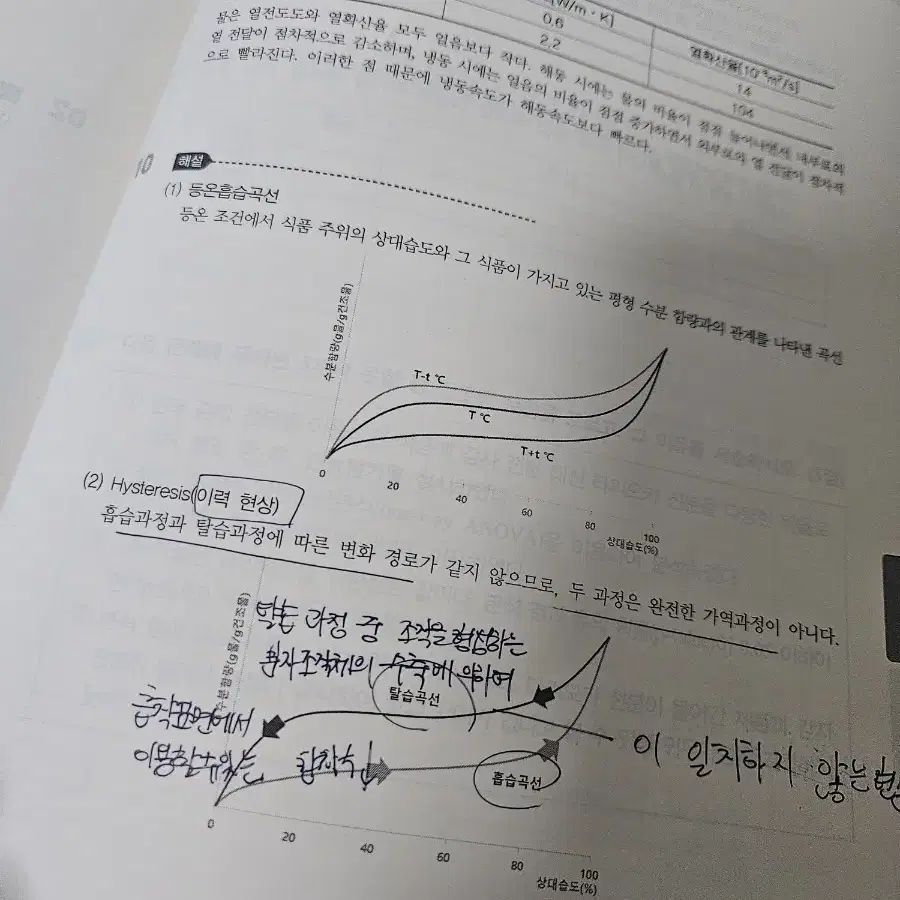 [W/m · K]
열확산율(10⁻⁸m²/s)
0.6
14
2.2
104
물은 열전도도와 열확산율 모두 얼음보다 작다. 해동 시에는 물의 비율이 점점 늘어나면서 내부로의
열 전달이 점차적으로 감소하며, 냉동 시에는 얼음의 비율이 점점 증가하면서 외부로의 열 전달이 점차적
으로 빨라진다. 이러한 점 때문에 냉동속도가 해동속도보다 빠르다.
10 해설
(1) 등온흡습곡선
등온 조건에서 식품 주위의 상대습도와 그 식품이 가지고 있는 평형 수분 함량과의 관계를 나타낸 곡선
수분함량(g물/g건조물)
T-t ℃
T ℃
T+t ℃
0 20 40 60 80 100
상대습도(%)
(2) Hysteresis(이력 현상)
흡습과정과 탈습과정에 따른 변화 경로가 같지 않으므로, 두 과정은 완전한 가역과정이 아니다.
수분함량(g물/g건조물)
탈습 과정 중 조직을 형성하는
분자조직체의 수축에 의하여
탈습곡선
흡착표면에서
이 일치하지 않는 현
이용할 수 있는
흡습곡선
0 20 40 60 80 100
상대습도(%)